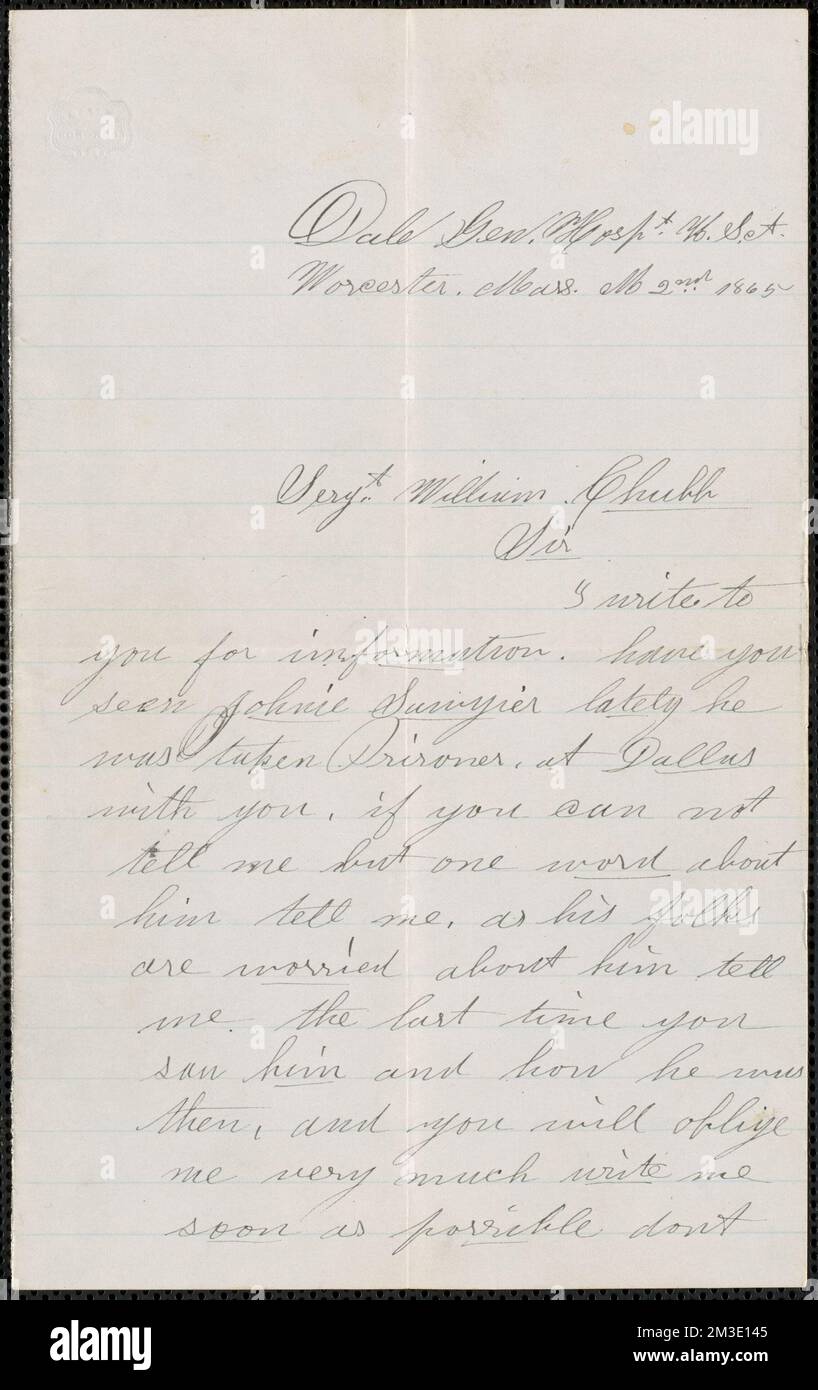 Dale Gen. Hospt. U. S. A.
Worcester. Mass. M 2nd. 1865
Sergt. William. Chubb
Sir
I write to
you for information. have you
seen Johnie Sawyier lately he
was taken Prisoner. at Dallas
with you. if you can not
tell me but one word about
him tell me. as his folks
are worried about him tell
me. the last time you
saw him and how he was
then, and you will oblige
me very much write me
soon as possible dont
alamy
Image ID: 2M3E145
www.alamy.com